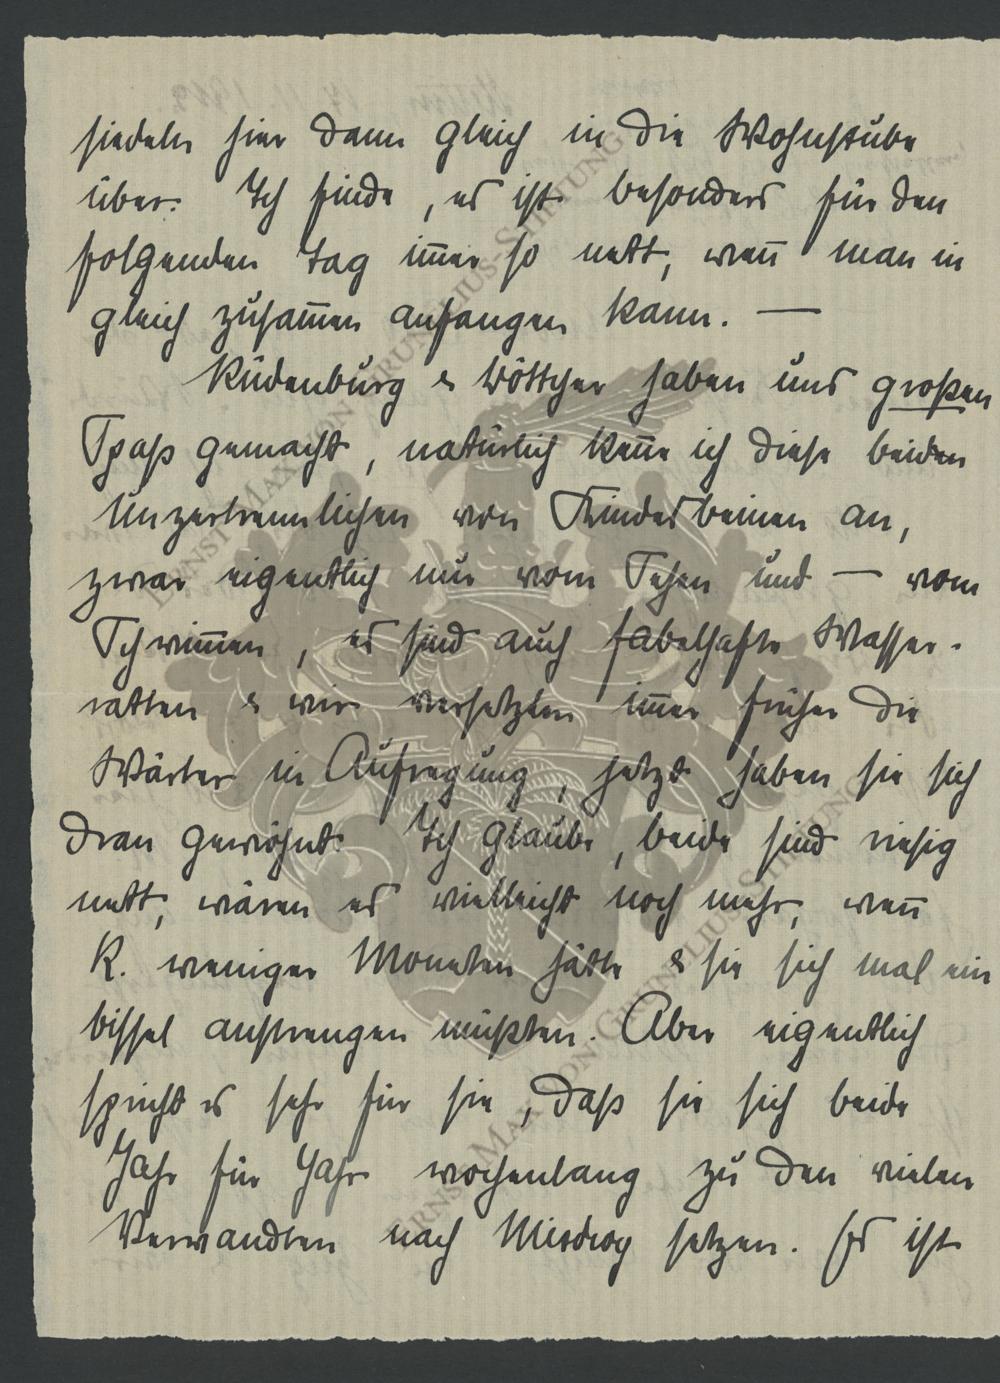 siedeln hier dann gleich in die Wohnstube
über. Ich finde, es ist besonders für den
folgenden Tag im̅er so nett, wen̅ man in
gleich zusam̅en anfangen kann. —
Rüdenburg & Böttcher haben uns großen
Spaß gemacht, natürlich ken̅e ich diese beiden
Unzertrennlichen von Kindesbeinen an,
zwar eigentlich nur vom Sehen und — vom
Schwim̅en, es sind auch fabelhafte Wasser-
ratten & wir versetzten im̅er früher die
Wärter in Aufregung, jetzt haben sie sich
dran gewöhnt. Ich glaube, beide sind riesig
nett, wären es vielleicht noch mehr, wen̅
R. weniger Moneten hätte & sie sich mal ein
bissel anstrengen müßten. Aber eigentlich
spricht es sehr für sie, daß sie sich beide
Jahr für Jahr wochenlang zu den vielen
Verwandten nach Misdroy setzen. Es ist
ERNST MAX VON GRUNELIUS-STIFTUNG
ERNST MAX VON GRUNELIUS-STIFTUNG